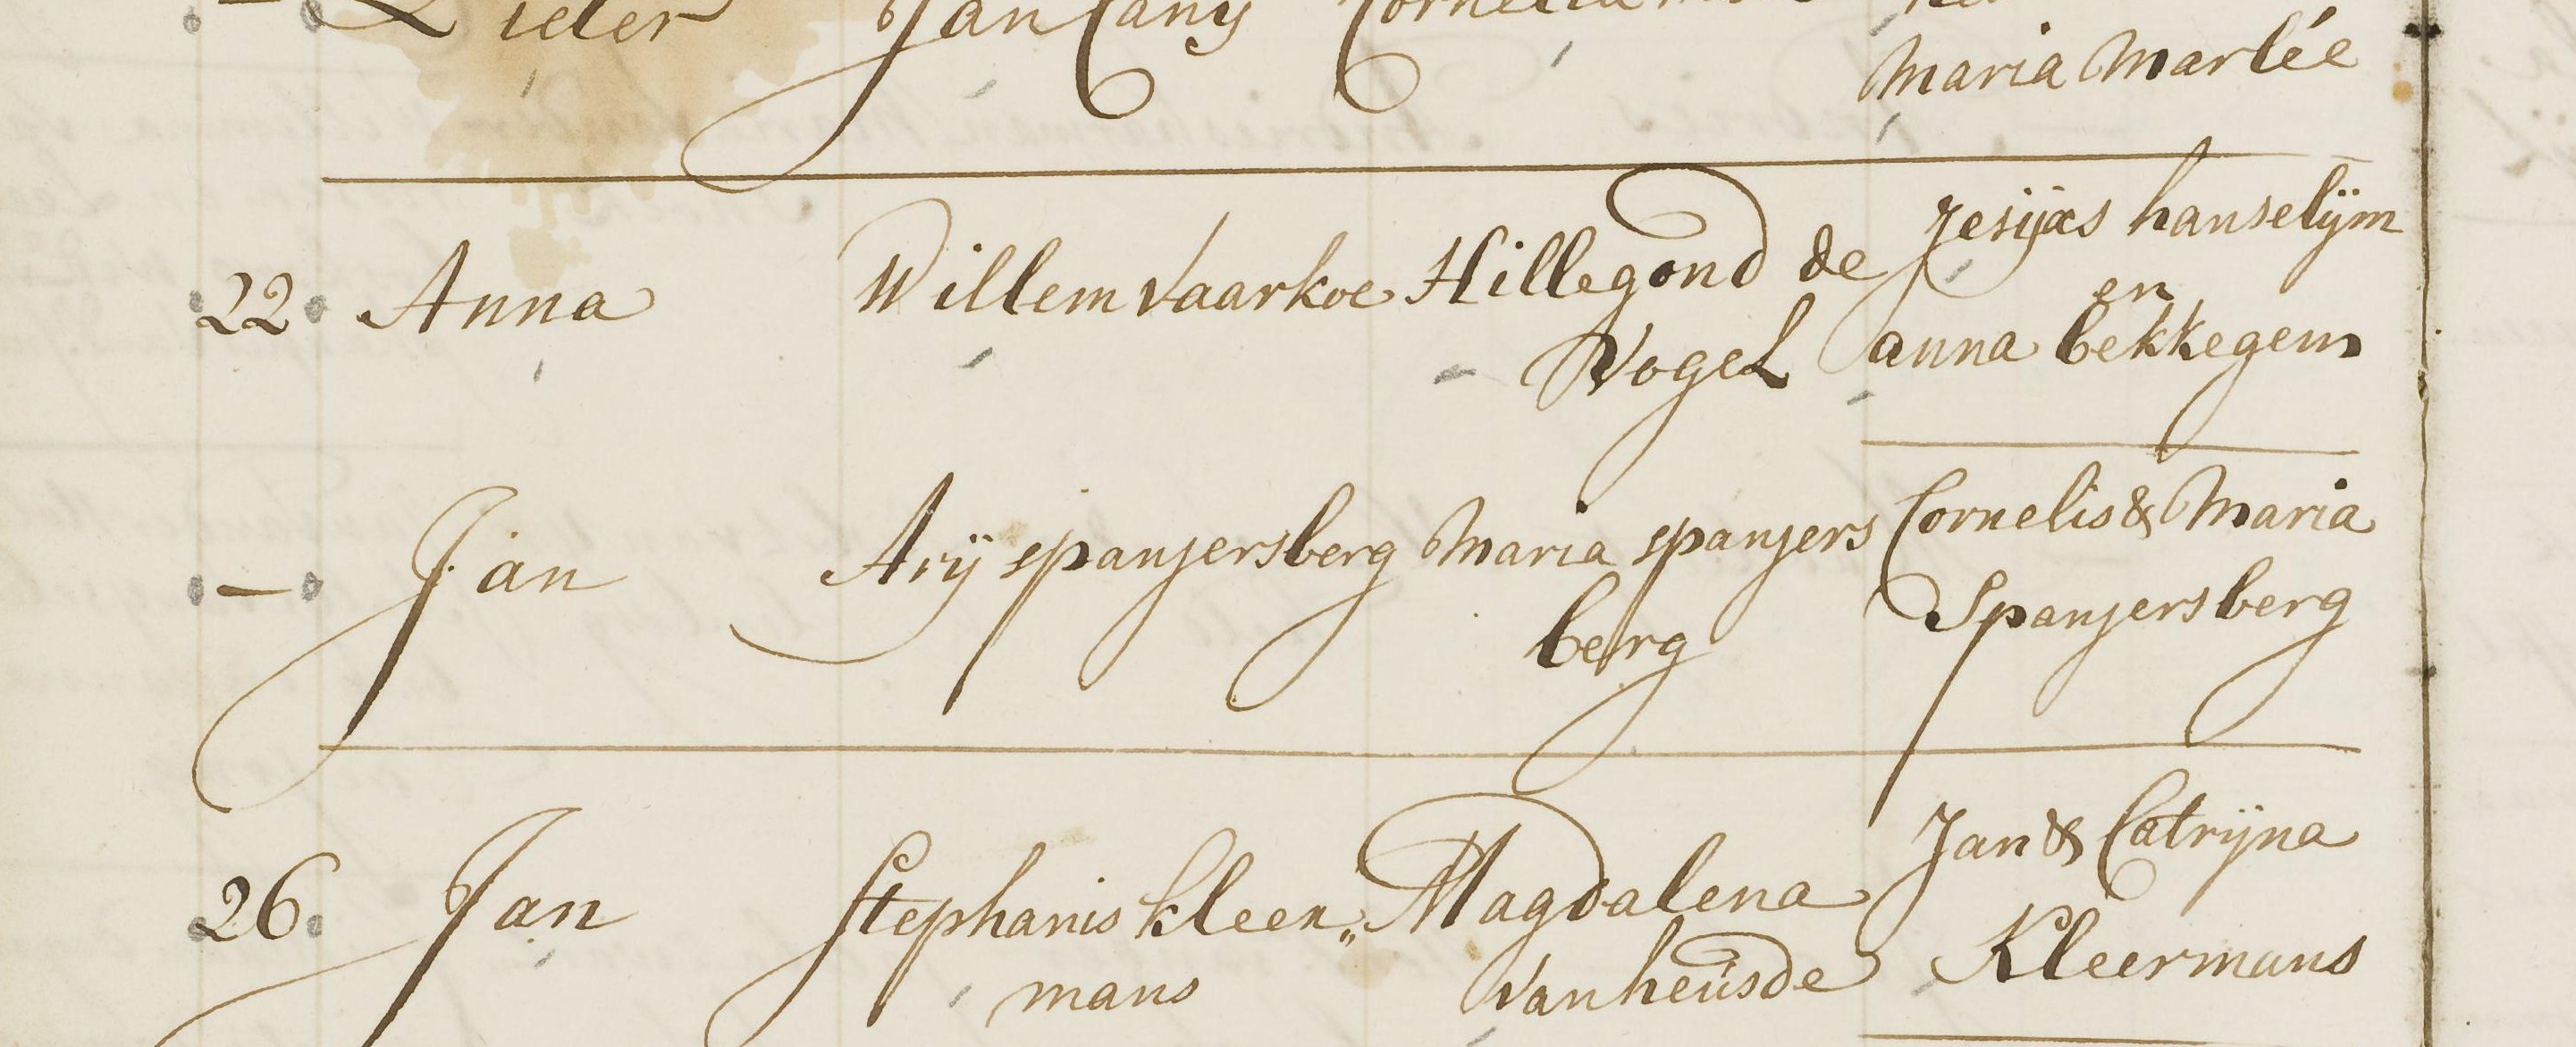 Pieter Jan Canÿ
Maria Marlée
22 Anna Willem Vaarkoe Hillegond de Vogel Jesÿas hanselÿm en anna bekkegem
— Jan Arÿ spanjersberg Maria spanjers berg Cornelis & Maria Spanjersberg
26 Jan Stephanis kleer„ mans Magdalena Van heusde Jan & Catrÿna Kleermans